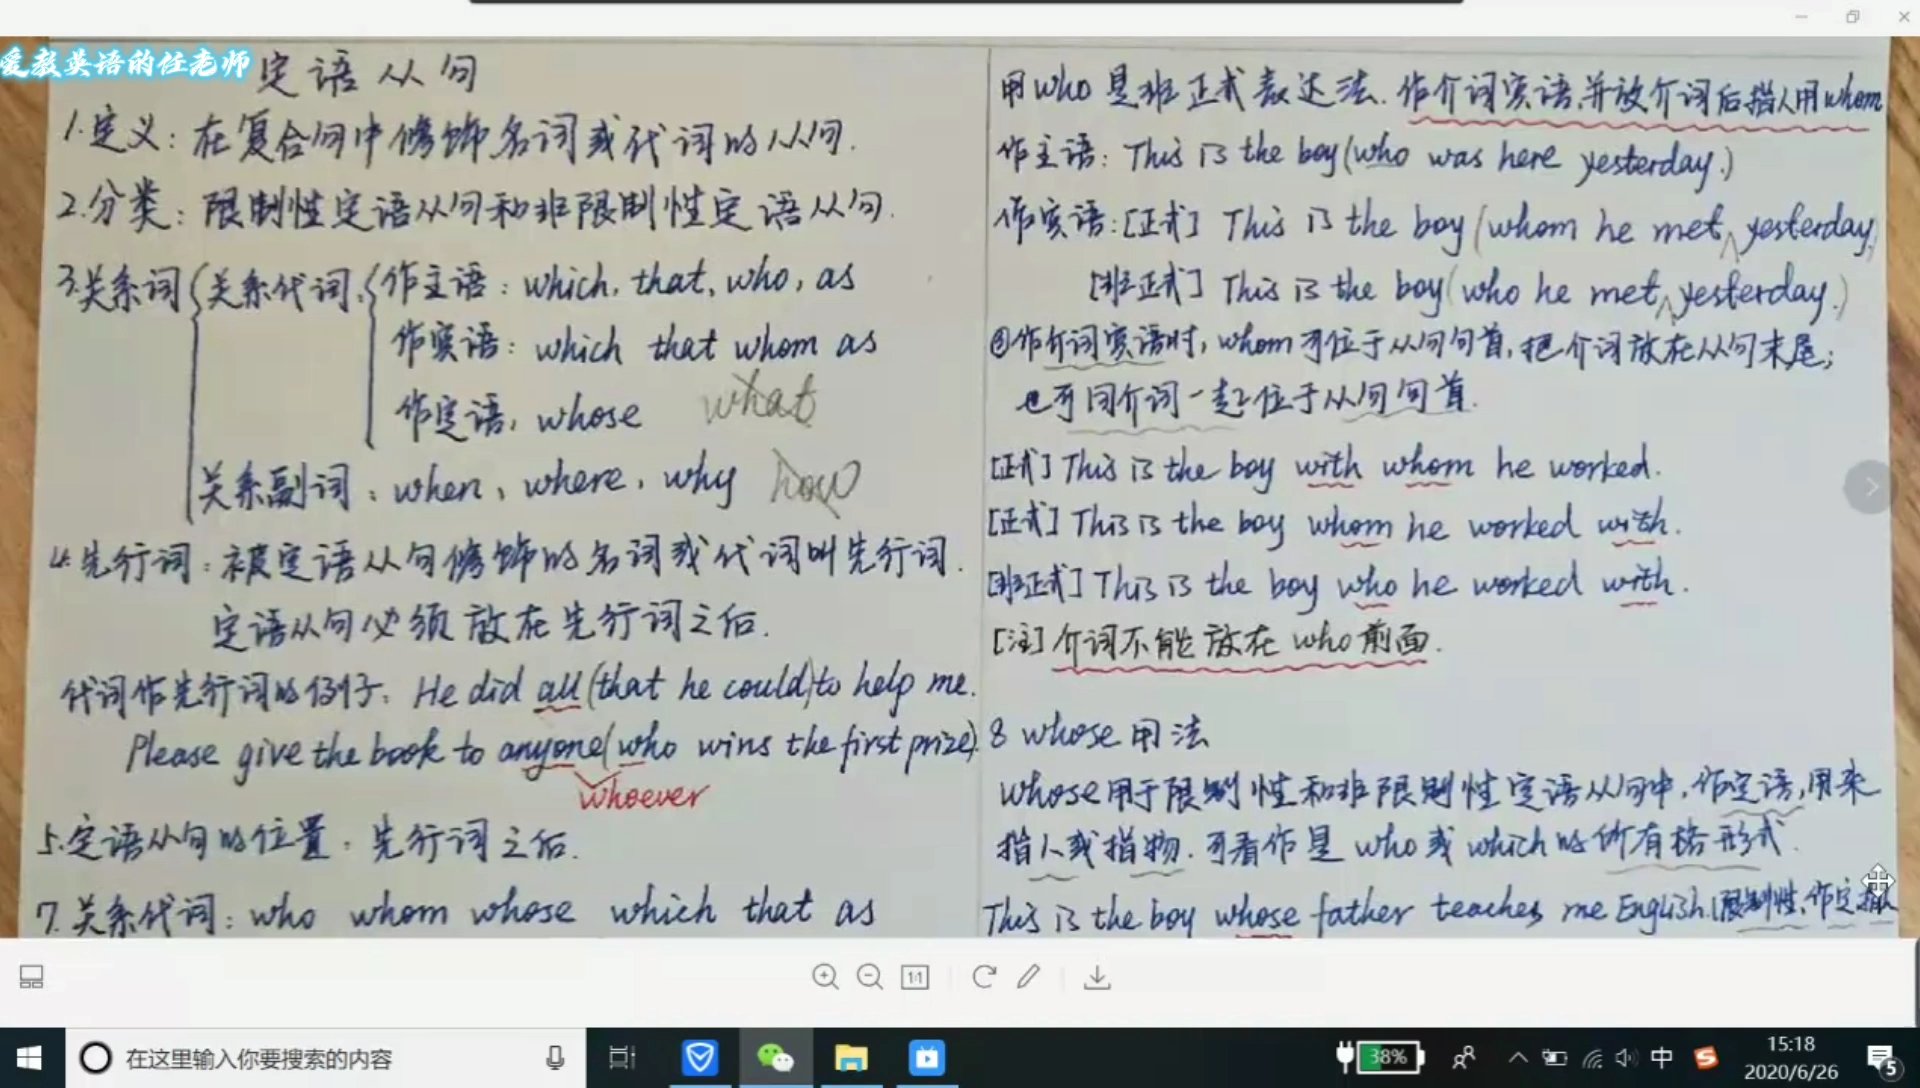 爱教英语的任老师
定语从句
1.定义：在复合句中修饰名词或代词的从句.
2.分类：限制性定语从句和非限制性定语从句.
3.关系词 关系代词： 作主语：which, that, who, as
作宾语：which that whom as
作定语, whose what
关系副词：when, where, why how
4.先行词：被定语从句修饰的名词或代词叫先行词.
定语从句必须放在先行词之后.
代词作先行词的例子：He did all (that he could) to help me.
Please give the book to anyone (who wins the first prize).
whoever
5.定语从句的位置：先行词之后.
7.关系代词：who whom whose which that as
用who是非正式表达法.作介词宾语,并放介词后指人用whom
作主语：This is the boy (who was here yesterday.)
作宾语：[正式] This is the boy (whom he met yesterday.)
[非正式] This is the boy (who he met yesterday.)
作介词宾语时, whom可位于从句句首, 把介词放在从句末尾;
也可同介词一起位于从句句首.
[正式] This is the boy with whom he worked.
[正式] This is the boy whom he worked with.
[非正式] This is the boy who he worked with.
[注] 介词不能放在who前面.
8 whose用法
whose用于限制性和非限制性定语从句中, 作定语, 用来
指人或指物. 可看作是who或which的所有格形式.
This is the boy whose father teaches me English. (限制性, 作定
1:1
在这里输入你要搜索的内容
38%
中
15:18
2020/6/26
5